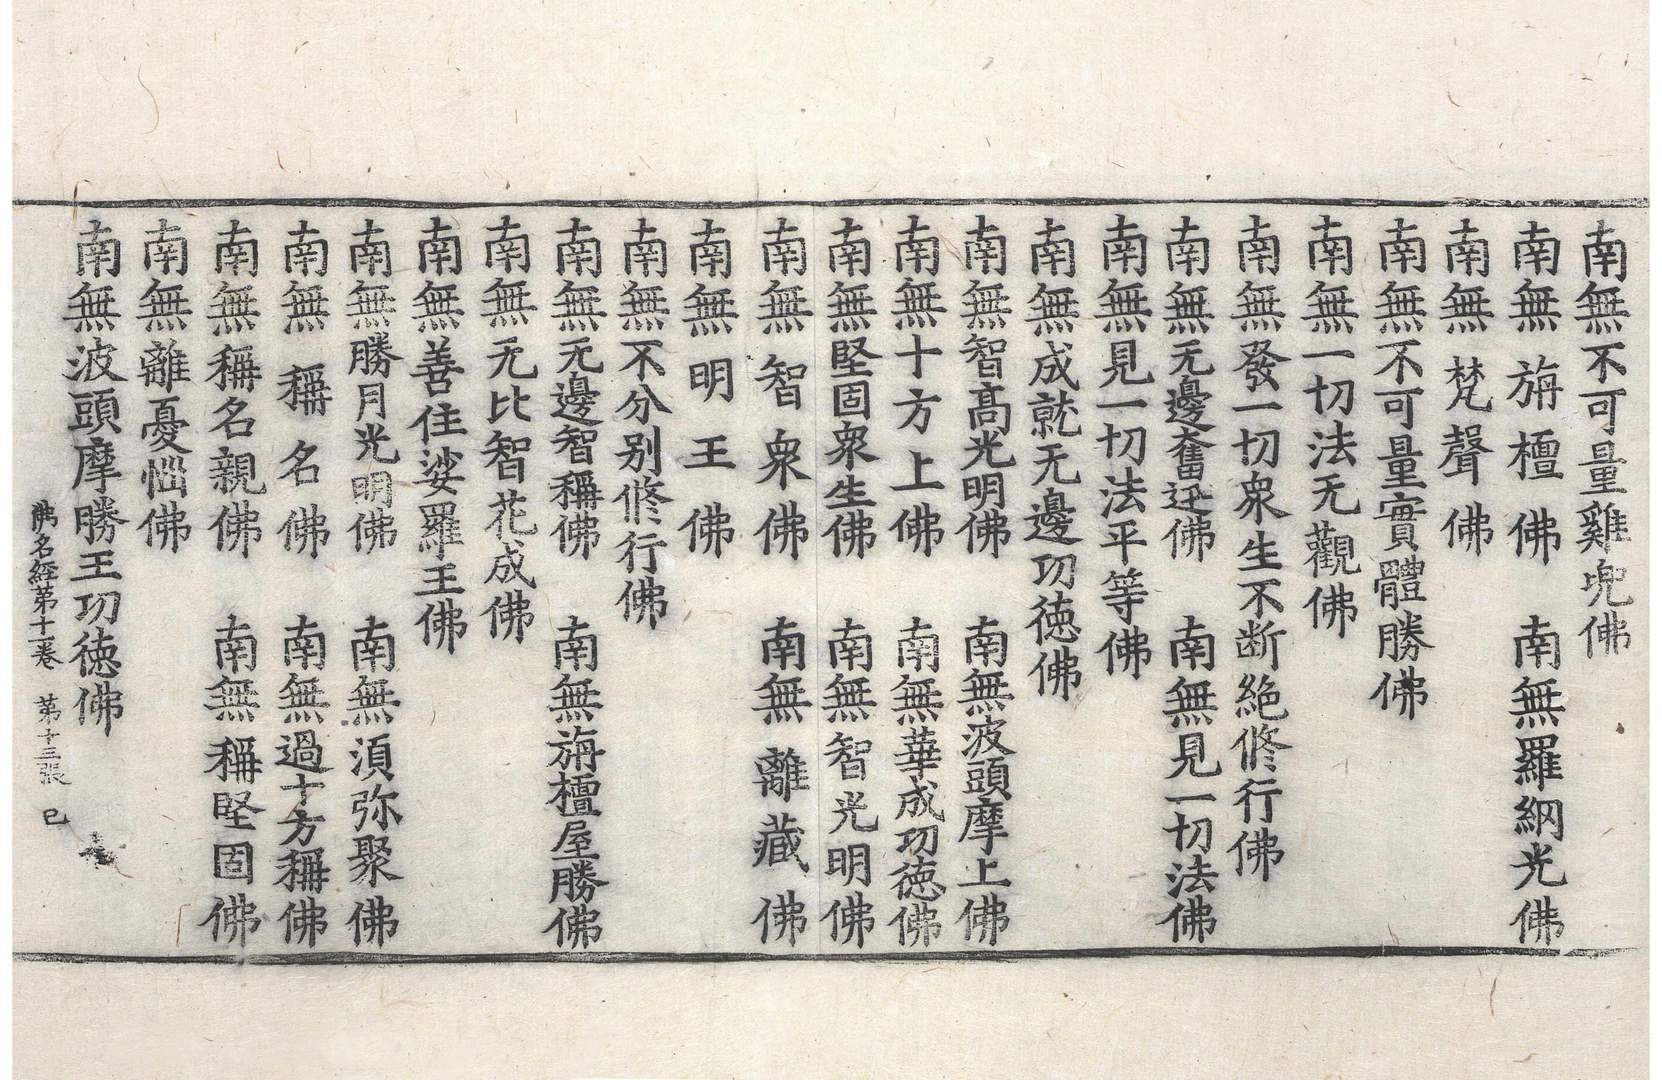 南無不可量雞兜佛
南無旃檀佛　南無羅網光佛
南無梵聲佛
南無不可量實體勝佛
南無一切法无觀佛
南無發一切衆生不断絶修行佛
南無无邊奮迅佛　南無見一切法佛
南無見一切法平等佛
南無成就无邊功徳佛
南無智髙光明佛　南無波頭摩上佛
南無十方上佛　南無華成功徳佛
南無堅固衆生佛　南無智光明佛
南無智衆佛　南無離藏佛
南無明王佛
南無不分别修行佛
南無无邊智稱佛　南無旃檀屋勝佛
南無无比智花成佛
南無善住娑羅王佛
南無勝月光明佛　南無須弥聚佛
南無稱名佛　南無過十方稱佛
南無稱名親佛　南無稱堅固佛
南無離憂惱佛
南無波頭摩勝王功徳佛
佛名經第十一卷　第十三張　巳